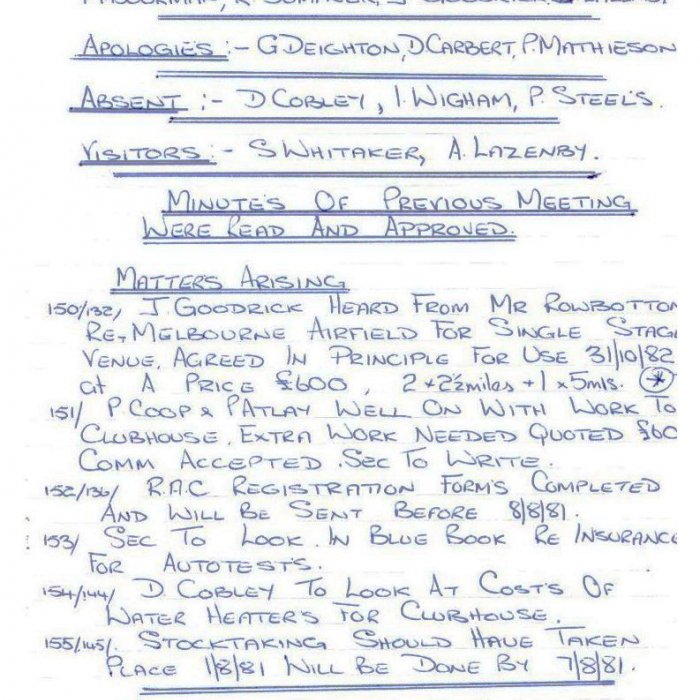 APOLOGIES :- G DEIGHTON, D CARBERT, P. MATHIESON
ABSENT :- D COBLEY, I. WIGHAM, P. STEEL'S.
VISITORS :- S WHITAKER, A. LAZENBY.
MINUTE'S OF PREVIOUS MEETING
WERE READ AND APPROVED.
MATTERS ARISING
150/132/ J. GOODRICK HEARD FROM MR ROWBOTTOM
RE, MELBOURNE AIRFIELD FOR SINGLE STAGE
VENUE, AGREED IN PRINCIPLE FOR USE 31/10/82
at A PRICE £600, 2 x 2½ miles + 1 x 5 mls. *
151/ P. COOP & P ATLAY WELL ON WITH WORK TO
CLUBHOUSE, EXTRA WORK NEEDED QUOTED £60
COMM ACCEPTED. SEC TO WRITE.
152/136/ R.A.C REGISTRATION FORM'S COMPLETED
AND WILL BE SENT BEFORE 8/8/81.
153/ SEC TO LOOK IN BLUE BOOK RE INSURANCE
FOR AUTOTEST'S.
154/144/ D. COBLEY TO LOOK AT COST'S OF
WATER HEATER'S FOR CLUBHOUSE.
155/145/. STOCKTAKING SHOULD HAVE TAKEN
PLACE 1/8/81 WILL BE DONE BY 7/8/81.